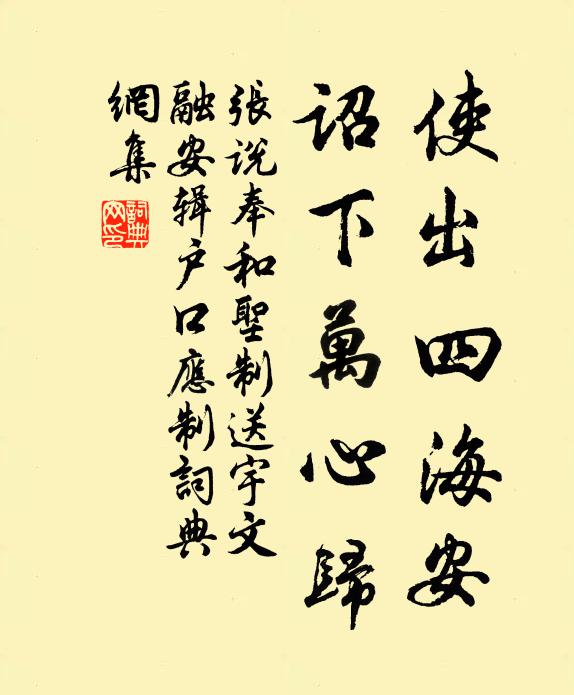 使出四海安
詔下萬心歸
張説奉和聖制送宇文
融安輯户口應制詞典
網集
詞典網印